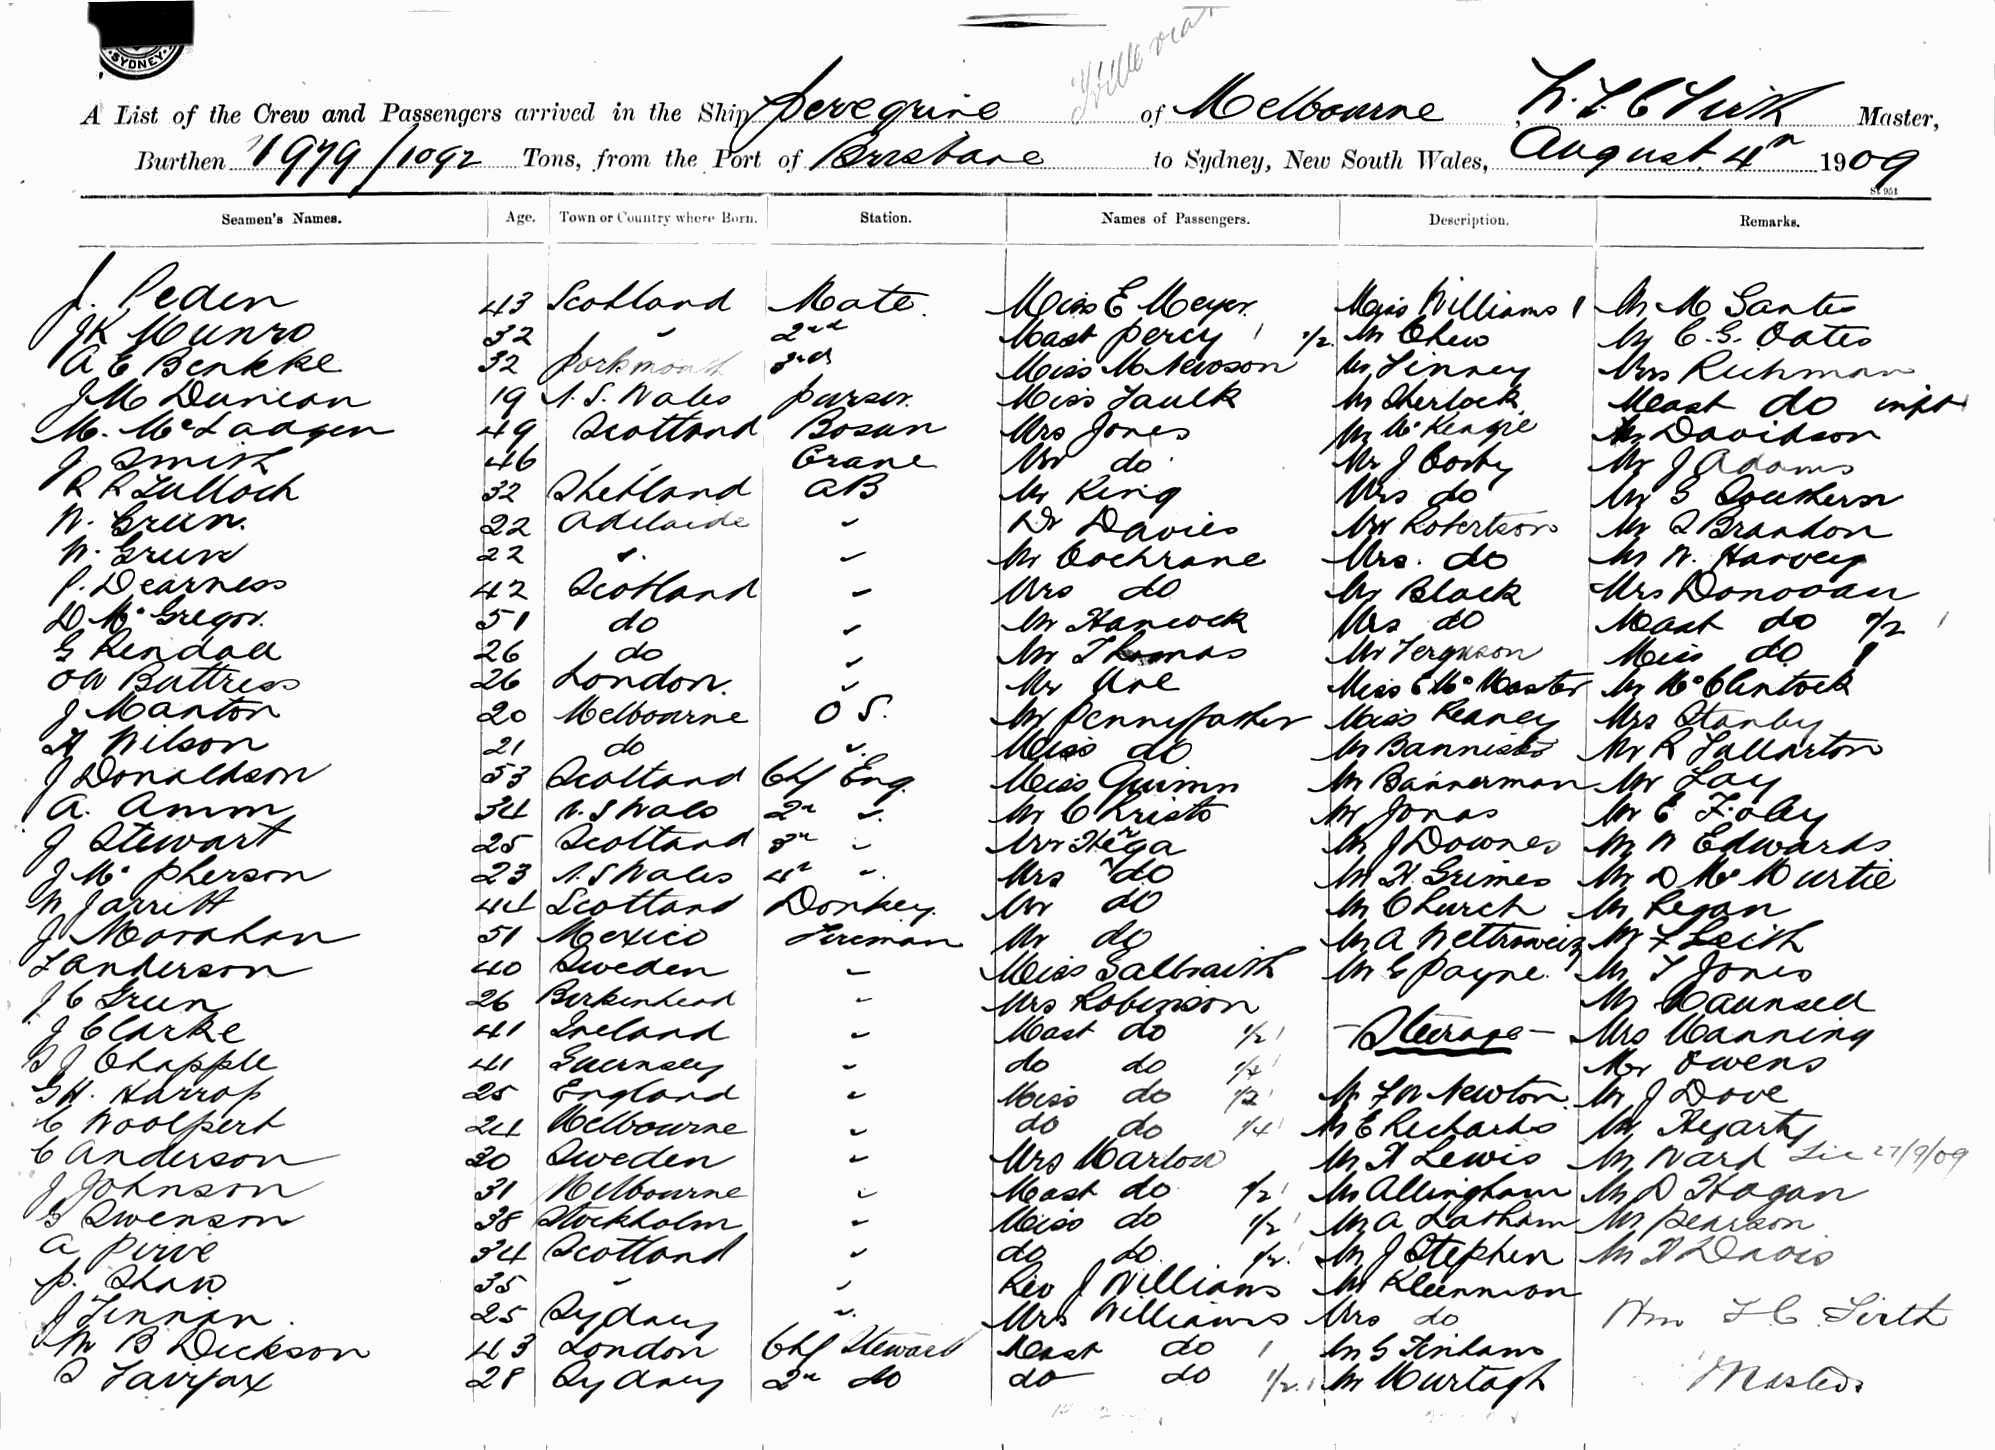 SYDNEY
A List of the Crew and Passengers arrived in the Ship Peregrine of Melbourne, W. F. C Firth Master,
Burthen 1979/1092 Tons, from the Port of Brisbane to Sydney, New South Wales, August 4th 1909
St 951
Seamen's Names. Age. Town or Country where Born. Station. Names of Passengers. Description. Remarks.
J. Peden 43 Scotland Mate. Miss E Meyer Miss Williams 1 Mr M Santes
JK Munro 32 " 2nd Mast Percy 1 1/2 Mr Chew Mr C. G. Oates
A E Benkke 32 Portsmouth 3rd Miss M Newson Mr Finney Mrs Richman
J M Duncan 19 N. S. Wales Purser. Miss Faulk Mr Sherlock Mast do inft
M. McFadgen 49 Scotland Bosun Mrs Jones Mr McKenzie Mr Davidson
J Smith 46 Crane Mr do Mr J Corby Mr J Adams
R R Tulloch 32 Shetland AB Mr King Mrs do Mr G Southern
W. Green. 22 Adelaide " Dr Davies Mr Robertson Mr S Brandon
W. Green 22 " " Mr Cochrane Mrs. do Mr W. Harvey
P. Dearness 42 Scotland " Mrs do Mr Black Mrs Donovan
D McGregor. 51 do " Mr Hancock Mrs do Mast do 1/2 1
G Kendall 26 do " Mr Thomas Mr Ferguson Miss do 1
OW Buttress 26 London. " Mr Une Miss E McMaster Mr McClintock
J Manton 20 Melbourne O S. Mr Pennyfather Miss Keaney Mrs Stanby
H Wilson 21 do " Miss do Mr Bannister Mr R Fullarton
J Donaldson 53 Scotland Chf Eng. Miss Quinn Mr Bannerman Mr Lay
A. Amm 34 N. S Wales 2nd " Mr Christo Mr Jonas Mr E Foley
J Stewart 25 Scotland 3rd " Mr Hega Mr J Downes Mr W Edwards
J McPherson 23 N. S Wales 4th " Mrs do Mr H. Grimes Mr D McMurtie
W Jarritt 44 Scotland Donkey. Mr do Mr Church Mr Regan
J Monahan 51 Mexico Fireman Mr do Mr A Mr F Leith
F Anderson 40 Sweden " Miss Galbraith Mr G Payne. Mr T Jones
J C Green 26 Birkenhead " Mrs Robinson Mr Maunsell
J Clarke 41 Ireland " Mast do 1/2 1 - Steerage - Mrs Manning
S J Chapple 41 Guernsey " do do 1/4 1 Mr Owens
G H. Harrop 25 England " Miss do 1/2 1 Mr F W Newton. Mr J Dove
C Woolpert 24 Melbourne " do do 1/4 1 Mr E Richards Mr Hegarty
C Anderson 30 Sweden " Mrs Marlow Mr H Lewis Mr Ward Lic 27/9/09
J Johnson 31 Melbourne " Mast do 1/2 1 Mr Allingham Mr D Hogan
G Swenson 38 Stockholm " Miss do 1/2 1 Mr A Latham Mr Pearson
A Pirie 34 Scotland " do do 1/2 1 Mr J Stephen Mr H Davis
P. Shaw 35 " " Rev J Williams Mr Kleenmon
J Finnan. 25 Sydney " Mrs Williams Mrs do Wm F. C. Firth
W B Dickson 43 London Chf Steward Mast do 1 Mr G Finham
S Fairfax 28 Sydney 2nd do do do 1/2 1 Mr Murtagh Master